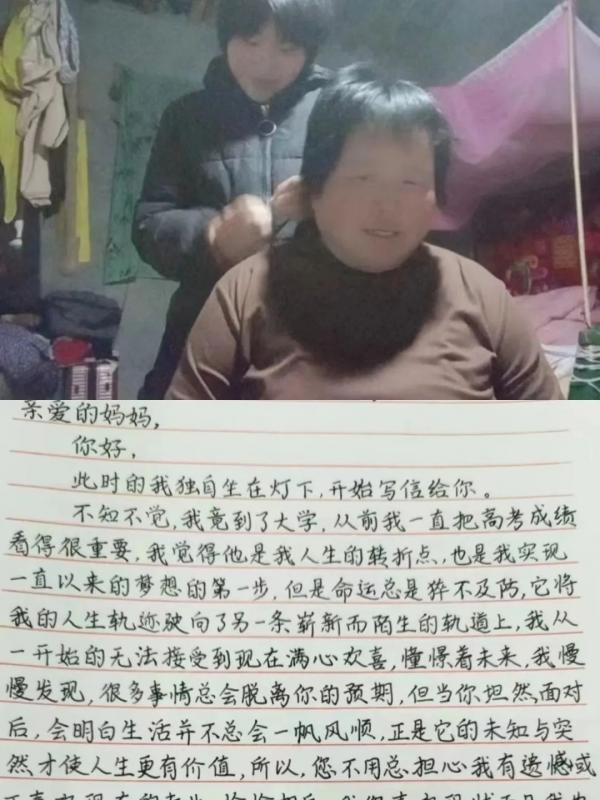 亲爱的妈妈,
你好,
此时的我独自坐在灯下,开始写信给你。
不知不觉,我竟到了大学,从前我一直把高考成绩
看得很重要,我觉得他是我人生的转折点,也是我实现
一直以来的梦想的第一步,但是命运总是猝不及防,它将
我的人生轨迹驶向了另一条崭新而陌生的轨道上,我从
一开始的无法接受到现在满心欢喜,憧憬着未来,我慢
慢发现,很多事情总会脱离你的预期,但当你坦然面对
后,会明白生活并不总会一帆风顺,正是它的未知与突
然才使人生更有价值,所以,您不用总担心我有遗憾或